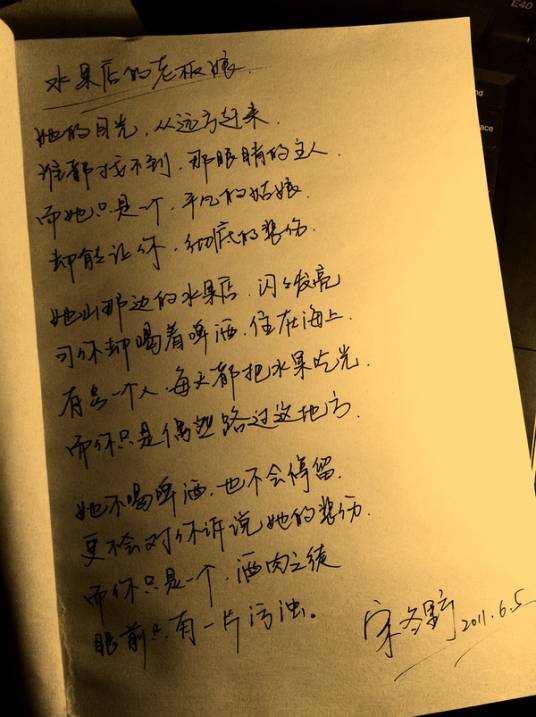 水果店的老板娘.
她的目光,从远方赶来.
谁都找不到,那眼睛的主人.
而她只是一个,平凡的姑娘.
却能让你,彻底的悲伤.
她山那边的水果店,闪々发亮
可你却喝着啤酒,住在海上.
有一个人,每天都把水果吃光.
而你只是偶然路过这地方.
她不喝啤酒,也不会停留.
更不会对你诉说她的悲伤.
而你只是一个,酒肉之徒
眼前只有一片污浊。
宋冬野 2011.6.5
E40